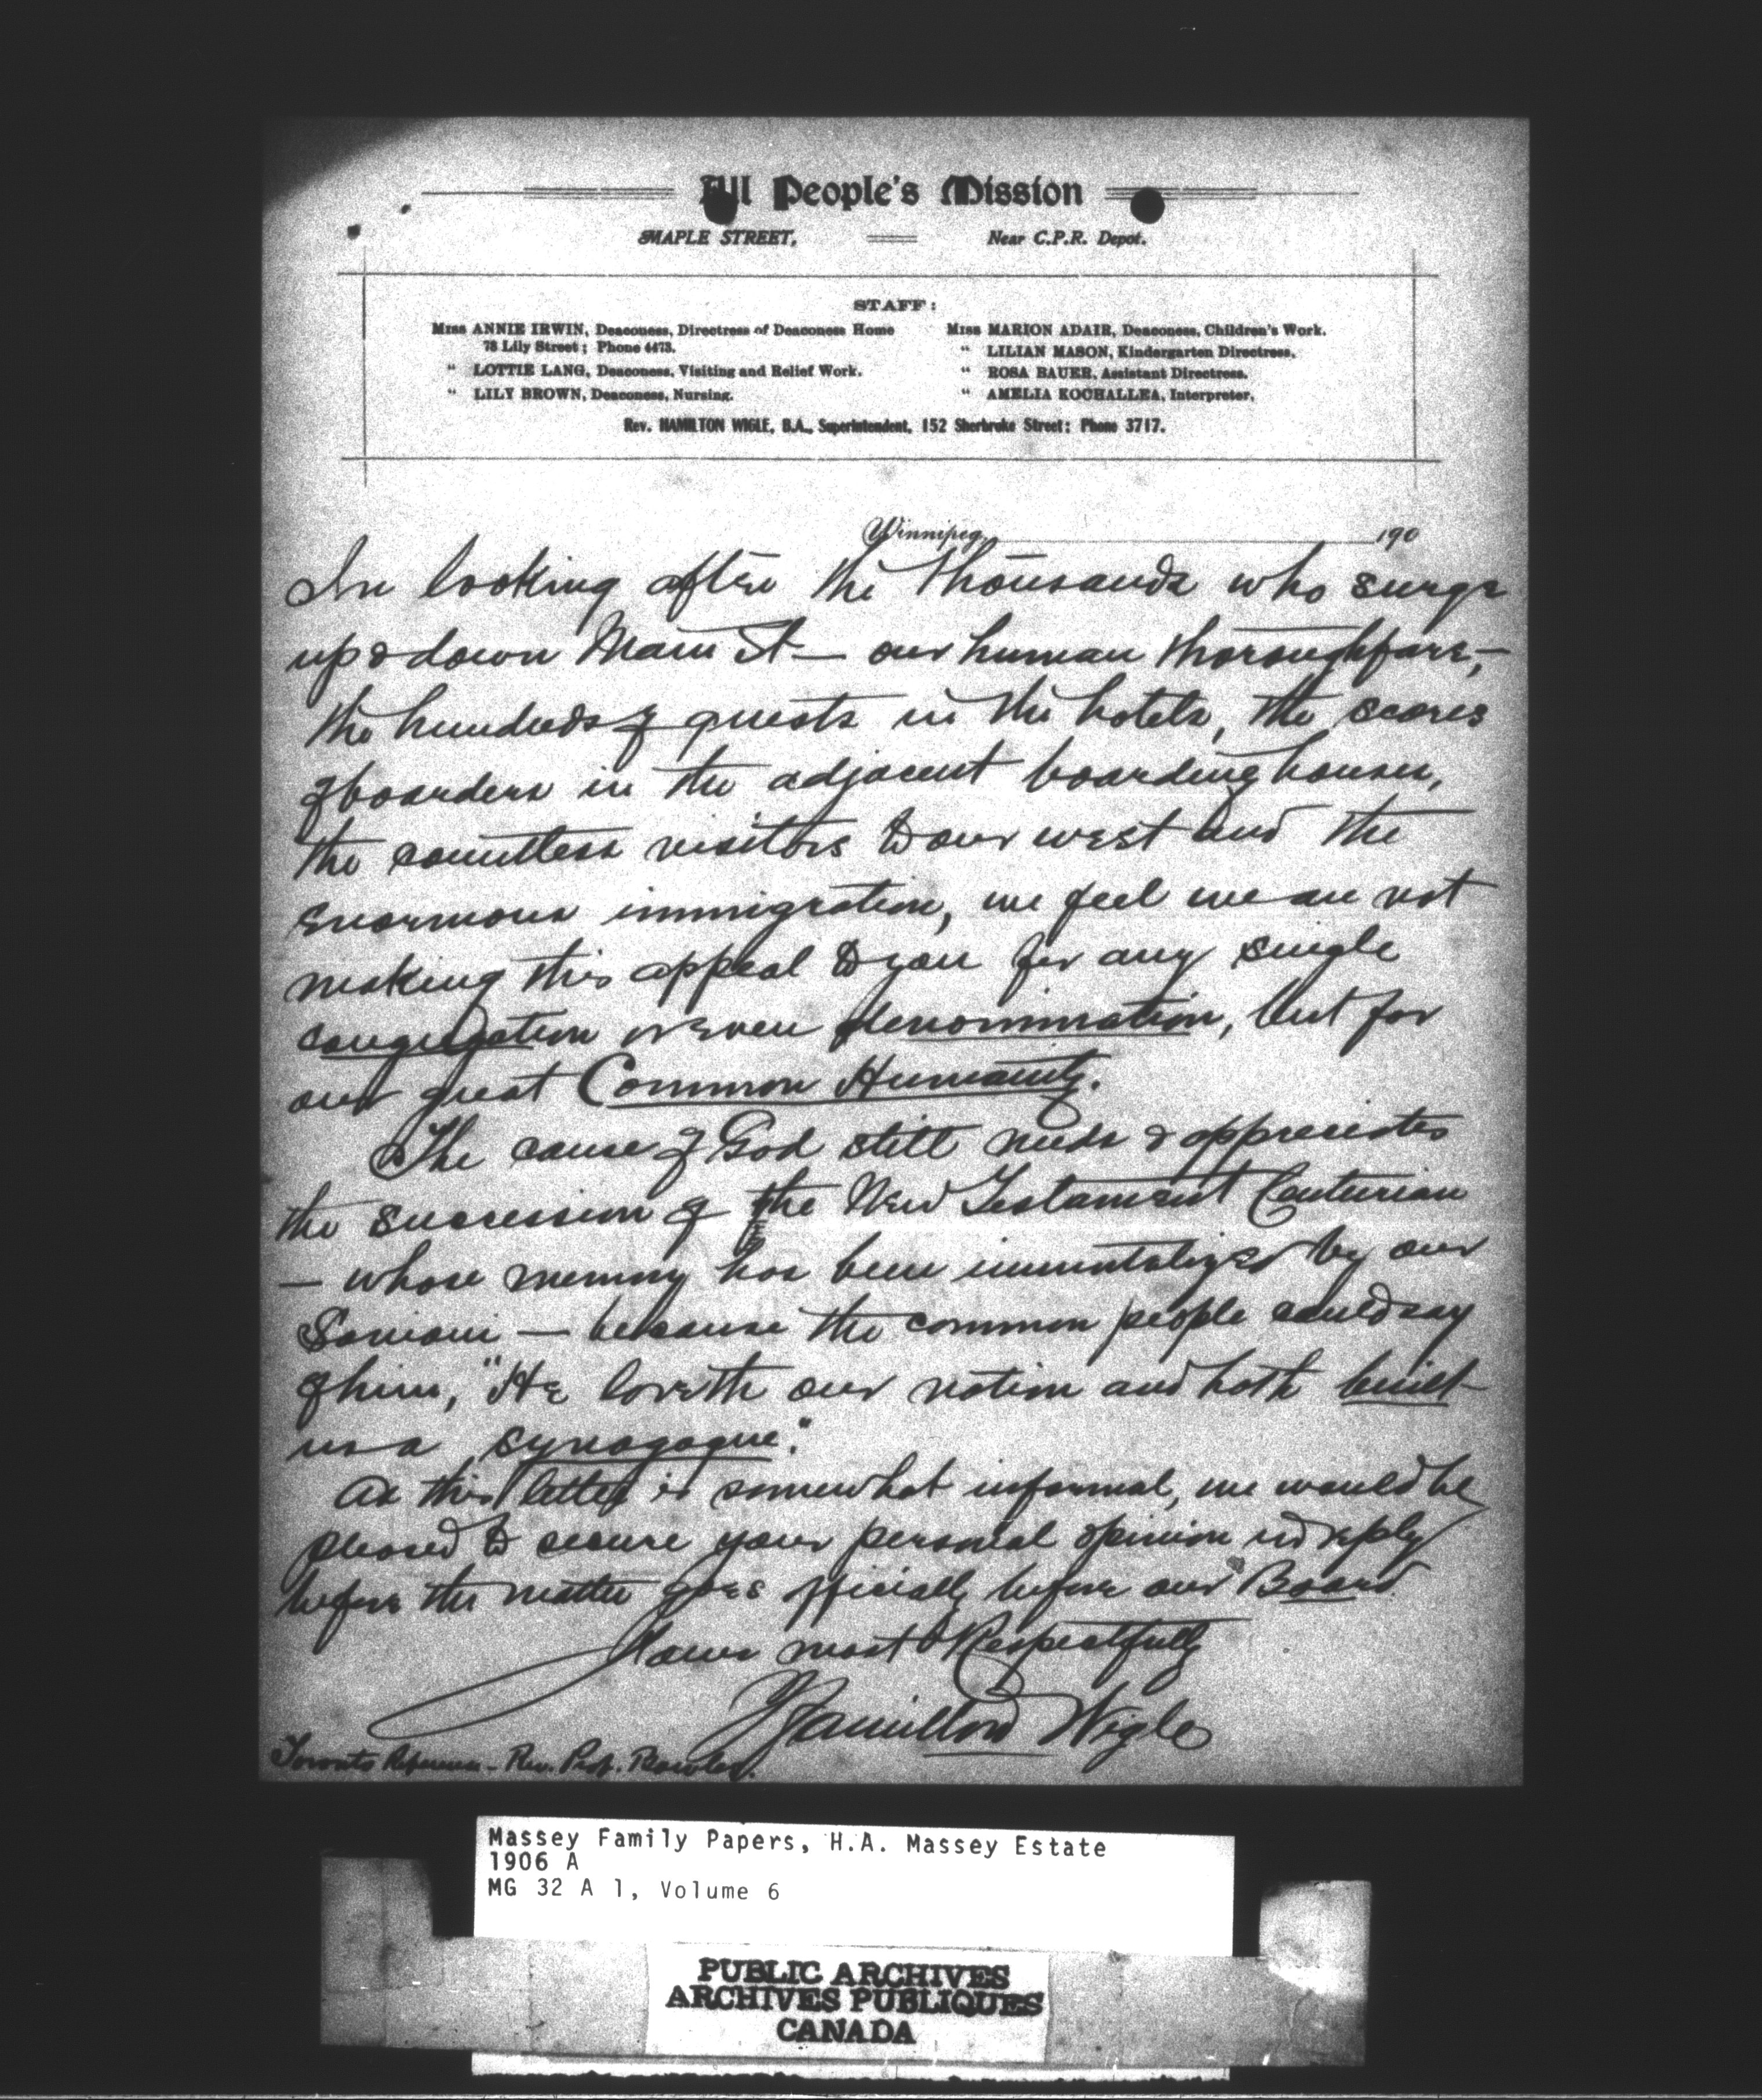 All People's Mission
MAPLE STREET, Near C.P.R. Depot.
STAFF:
Miss ANNIE IRWIN, Deaconess, Directress of Deaconess Home
78 Lily Street; Phone 4473.
" LOTTIE LANG, Deaconess, Visiting and Relief Work.
" LILY BROWN, Deaconess, Nursing.
Miss MARION ADAIR, Deaconess, Children's Work.
" LILIAN MASON, Kindergarten Directress.
" ROSA BAUER, Assistant Directress.
" AMELIA KOCHALLEA, Interpreter.
Rev. HAMILTON WIGLE, B.A., Superintendent, 152 Sherbroke Street; Phone 3717.
Winnipeg, 190
In looking after the thousands who surge
up & down Main St — our human thoroughfare, —
the hundreds of guests in the hotels, the scores
of boarders in the adjacent boarding houses,
the countless visitors to our west and the
enormous immigration, we feel we are not
making this appeal to you for any single
congregation or even denomination, but for
our great Common Humanity.
The cause of God still needs & appreciates
the succession of the New Testament Centurian
— whose memory has been immortalized by our
Saviour — because the common people could say
of him, "He loveth our nation and hath built
us a synagogue."
As this letter is somewhat informal, we would be
pleased to secure your personal opinion in reply
before the matter goes officially before our Board
Yours most Respectfully
Hamilton Wigle
Toronto Reference - Rev. Prof. Bowles.
Massey Family Papers, H.A. Massey Estate
1906 A
MG 32 A 1, Volume 6
PUBLIC ARCHIVES
ARCHIVES PUBLIQUES
CANADA